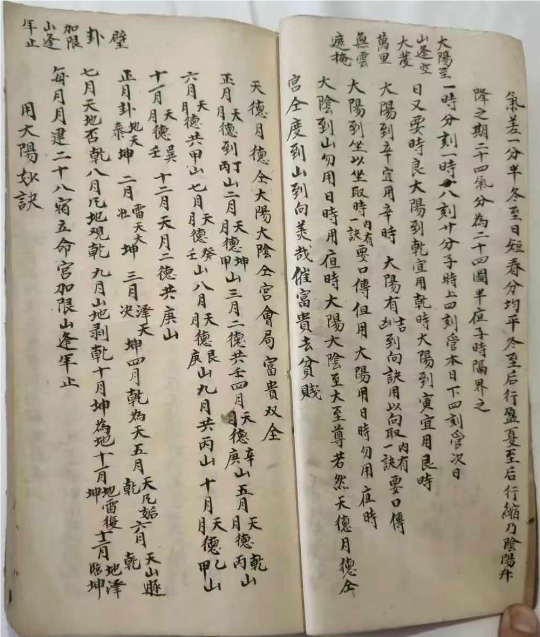 氣差一分半冬至日短春分均平冬至后行盈夏至后行縮乃陰陽升
降之期二十四氣分為二十四圖半夜子時隔界之
一時分刻一時八刻廿分子時上四刻管本日下四刻管次日
太陽至山逢空大發萬里無雲遮掩
日又要時良大陽到乾宜用乾時大陽到寅宜用艮時
大陽到辛宜用辛時 大陽有吉到向訣用以向取一訣內有要口傳
大陽到坐以坐取時訣內有要口傳但用大陽用日時勿用夜時
大陰到山勿用日時用夜時大陽大陰至大至尊若然天德月德仝
宮仝度到山到向美哉催富貴去貧賤
天德月德仝大陽大陰仝宮會局富貴双全
正月天德到丁山月德丙二月天德坤山月德甲三月二德共壬四月天德辛山月德庚五月天德乾山月德丙
六月天月德共甲山七月天德癸山月德壬八月天德艮山月德庚九月共丙山十月天德乙山月德甲
十一月天德巽月德壬十二月天月二德共庚山
正月卦地天泰坤二月雷天大壯坤三月澤天夬坤四月乾為天五月天風姤乾六月天山遯乾
七月天地否乾八月風地觀乾九月山地剥乾十月坤為地十一月地雷復坤十二月地澤臨坤
每月月建二十八宿立命宮加限山逢年止
用大陽妙訣
璧
卦
加限山逢年止